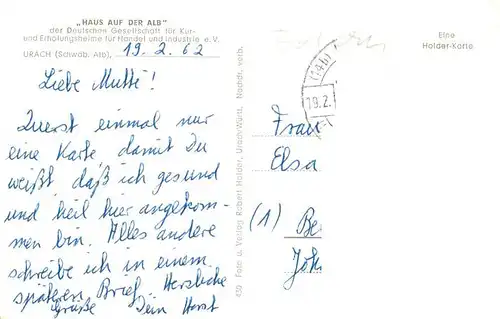 „HAUS AUF DER ALB"
der Deutschen Gesellschaft für Kur-
und Erholungsheime für Handel und Industrie e.V.
URACH (Schwäb. Alb), 19. 2. 62
Liebe Mutti!
Zuerst einmal nur
eine Karte damit Du
weißt daß ich gesund
und heil hier angekom-
men bin. Alles andere
schreibe ich in einem
späteren Brief. Herzliche
Grüße Dein Horst
439 Foto u. Verlag Robert Holder, Urach/Württ. Nachdr. verb.
Eine
Holder-Karte
(14b)
19.2.
Frau
Elsa
(1) Be
Joh